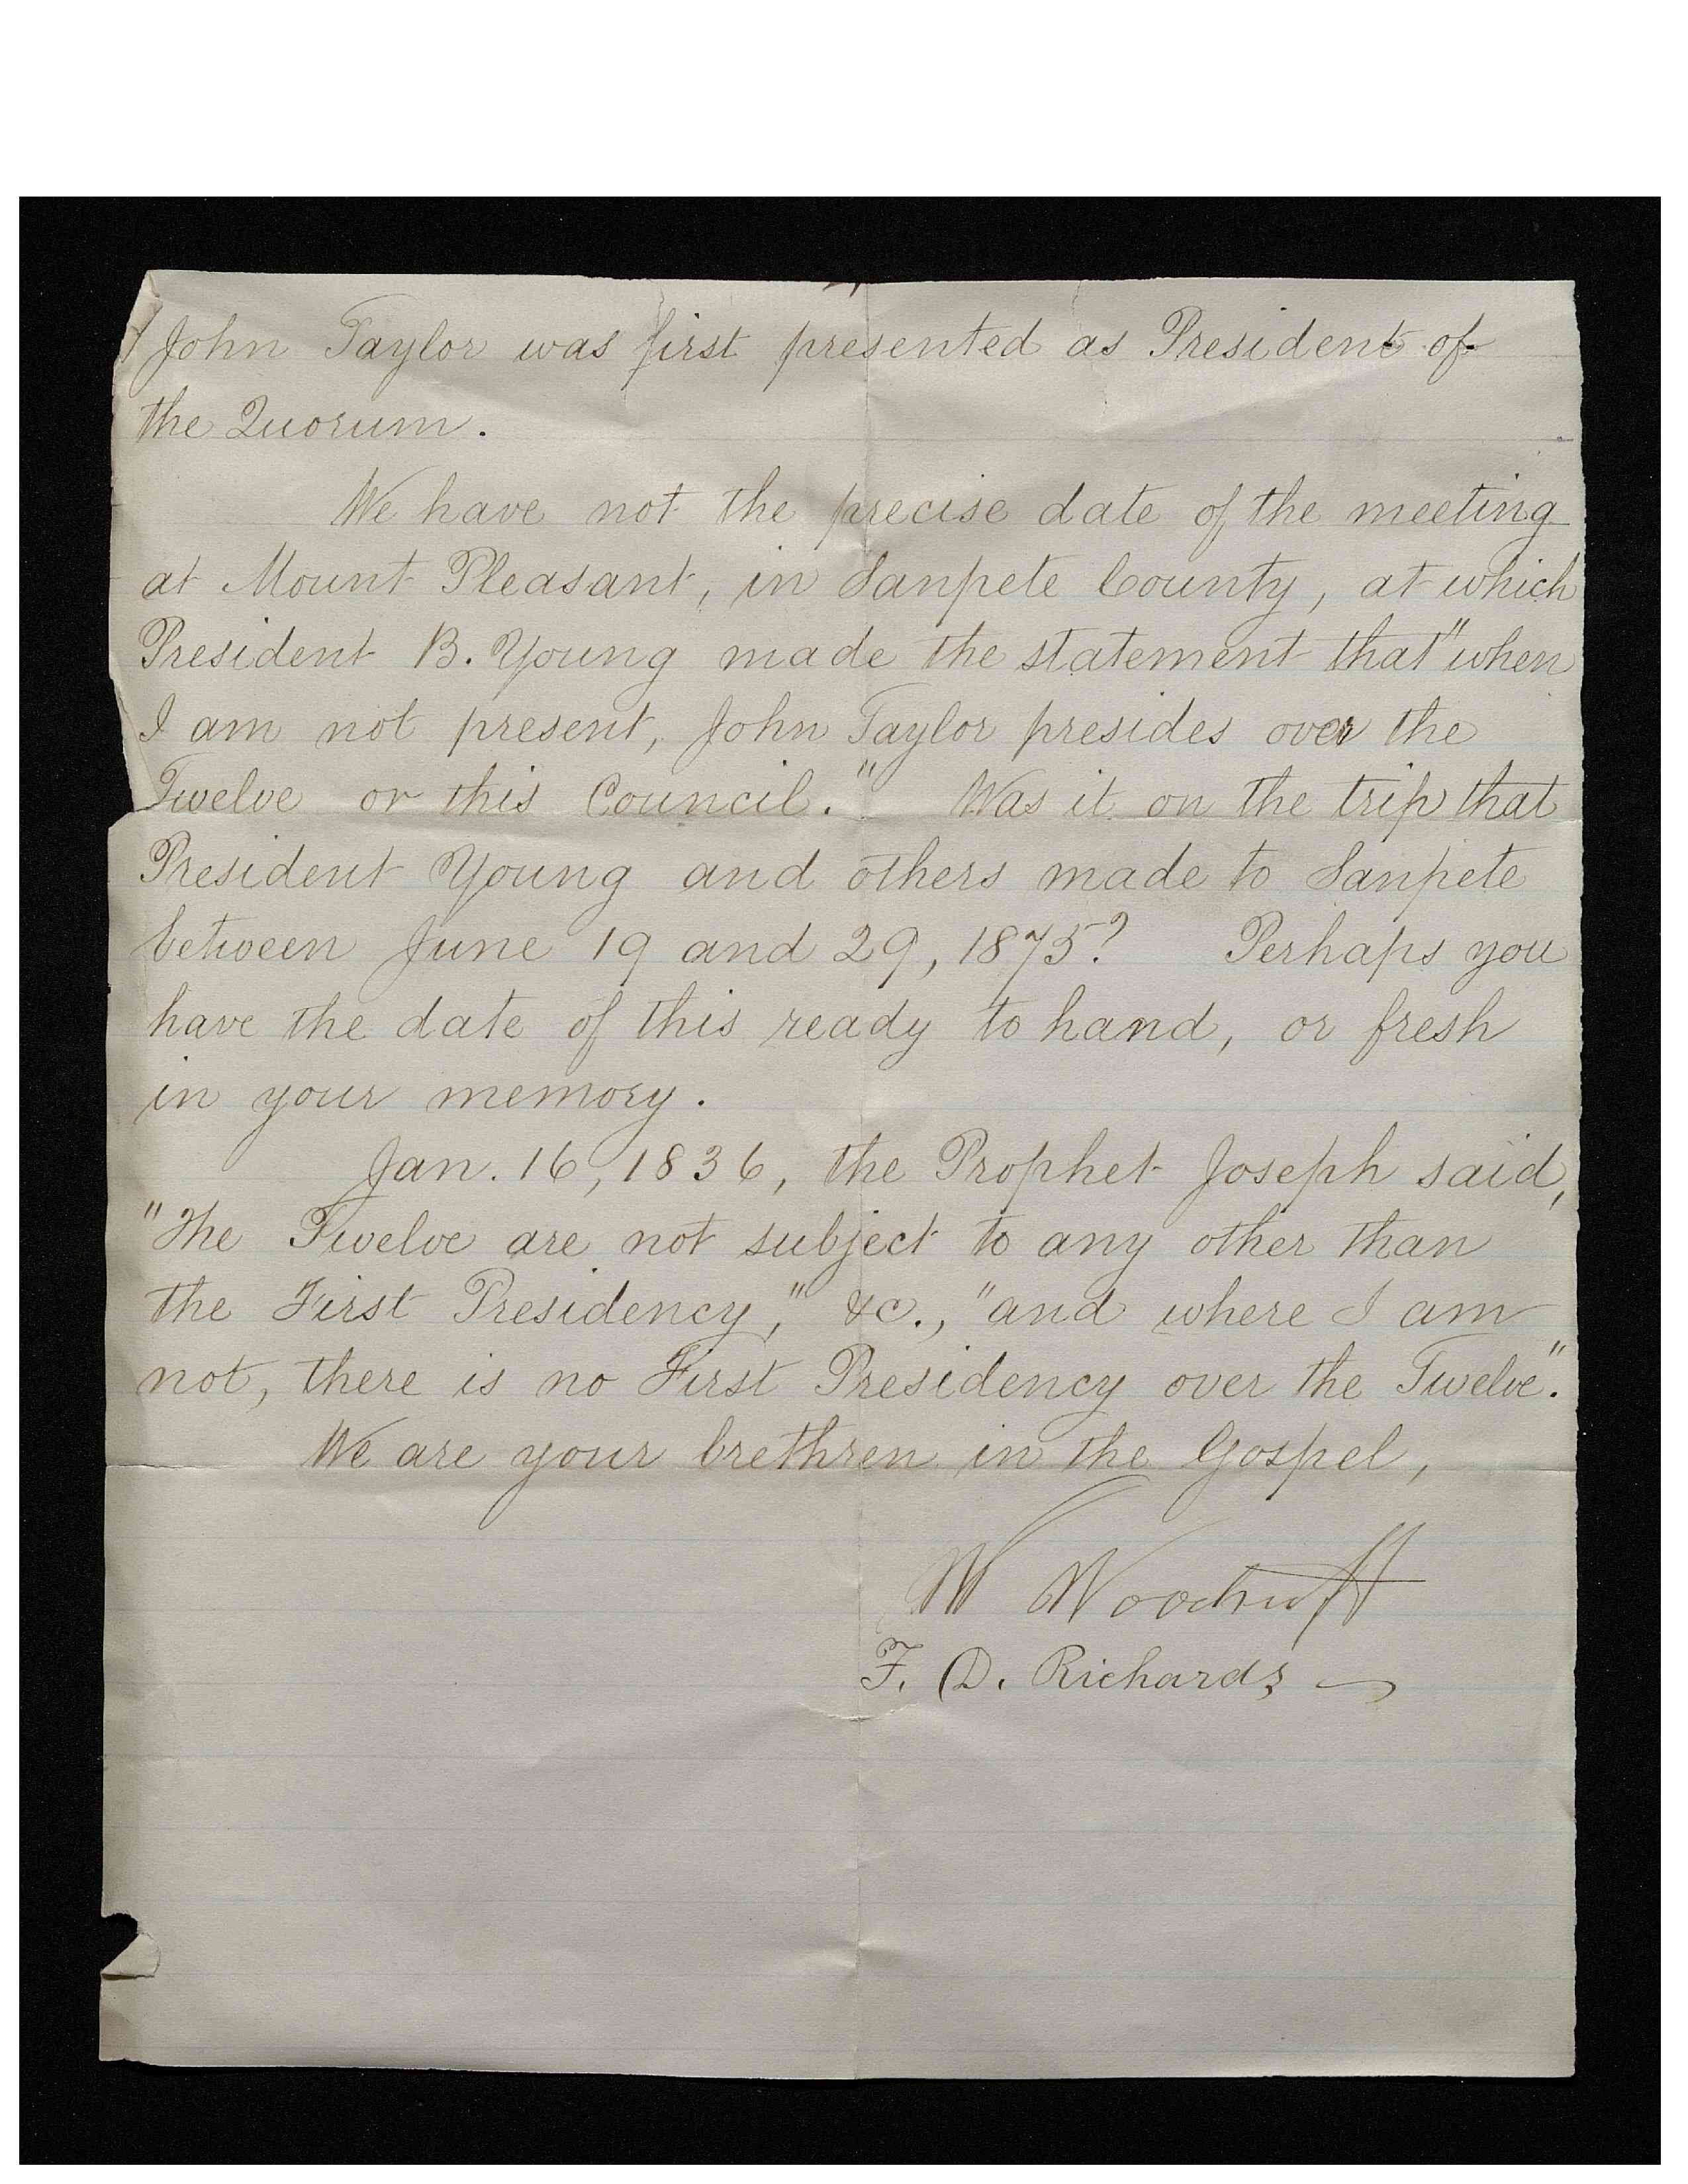 John Taylor was first presented as President of
the Quorum.
We have not the precise date of the meeting
at Mount Pleasant, in Sanpete County, at which
President B. Young made the statement that "when
I am not present, John Taylor presides over the
Twelve or this Council." Was it on the trip that
President Young and others made to Sanpete
between June 19 and 29, 1875? Perhaps you
have the date of this ready to hand, or fresh
in your memory.
Jan. 16, 1836, the Prophet Joseph said,
"The Twelve are not subject to any other than
the First Presidency," &c., "and where I am
not, there is no First Presidency over the Twelve."
We are your brethren in the Gospel,
W Woodruff
F. D. Richards